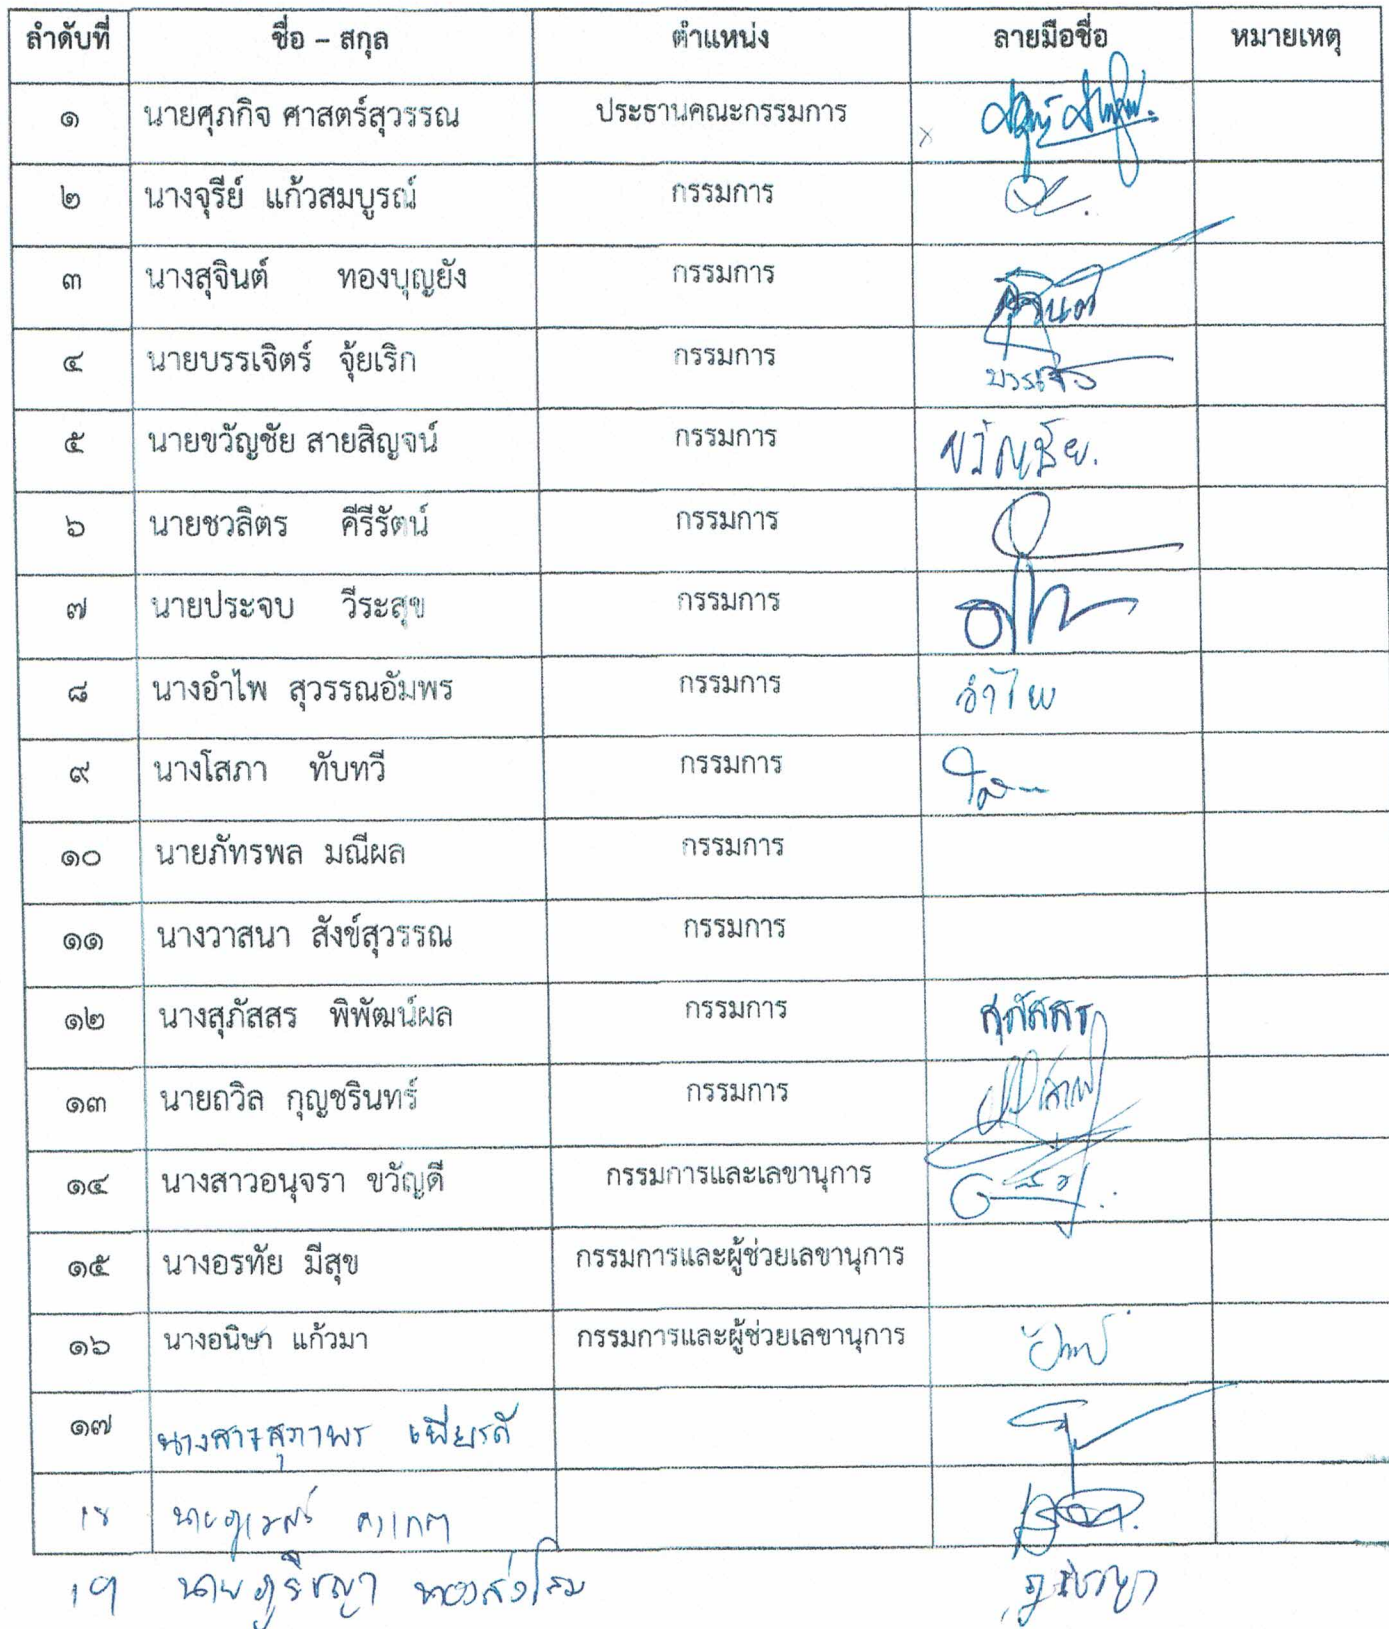 ลำดับที่ ชื่อ – สกุล ตำแหน่ง ลายมือชื่อ หมายเหตุ
๑ นายศุภกิจ ศาสตร์สุวรรณ ประธานคณะกรรมการ
๒ นางจุรีย์ แก้วสมบูรณ์ กรรมการ
๓ นางสุจินต์ ทองบุญยัง กรรมการ สุจินต์
๔ นายบรรเจิตร์ จุ้ยเริก กรรมการ
๕ นายขวัญชัย สายสิญจน์ กรรมการ ขวัญชัย.
๖ นายชวลิตร คีรีรัตน์ กรรมการ
๗ นายประจบ วีระสุข กรรมการ
๘ นางอำไพ สุวรรณอัมพร กรรมการ อำไพ
๙ นางโสภา ทับทวี กรรมการ
๑๐ นายภัทรพล มณีผล กรรมการ
๑๑ นางวาสนา สังข์สุวรรณ กรรมการ
๑๒ นางสุภัสสร พิพัฒน์ผล กรรมการ สุภัสสร
๑๓ นายถวิล กุญชรินทร์ กรรมการ
๑๔ นางสาวอนุจรา ขวัญดี กรรมการและเลขานุการ
๑๕ นางอรทัย มีสุข กรรมการและผู้ช่วยเลขานุการ
๑๖ นางอนิษา แก้วมา กรรมการและผู้ช่วยเลขานุการ
๑๗ นางสาวสุภาพร เพียรดี
18
19 นายภูริชญา ทองส่งโสม ภูริชญา